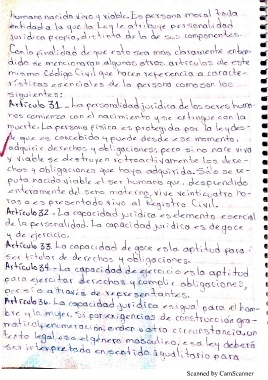 humano nacido vivo y viable. Es persona moral toda
entidad a la que la Ley le atribuye personalidad
jurídica propia, distinta de la de sus componentes.
Con la finalidad de que esto sea mas claramente enten-
dido se mencionaran algunos otros artículos de este
mismo Código Civil que hacen referencia a caracte-
rísticas esenciales de la persona como son los
siguientes:
Artículo 31.- La personalidad jurídica de los seres huma-
nos comienza con el nacimiento y se extingue con la
muerte. La persona física es protegida por la ley des-
de que es concebida y puede desde ese momento,
adquirir derechos y obligaciones, pero si no nace viva
y viable se destruyen retroactivamente los dere-
chos y obligaciones que haya adquirido. Solo se re-
puta nacido viable el ser humano que, desprendido
enteramente del seno materno, vive veinticuatro ho-
ras o es presentado vivo al Registro Civil.
Artículo 32.- La capacidad jurídica es elemento esencial
de la personalidad. La capacidad jurídica es de goce
y de ejercicio.
Artículo 33. La capacidad de goce es la aptitud para
ser titular de derechos y obligaciones.
Artículo 34.- La capacidad de ejercicio es la aptitud
para ejercitar derechos y cumplir obligaciones,
por sí o a través de representantes.
Artículo 36. La capacidad jurídica es igual para el hom-
bre y la mujer. Si por exigencias de construcción gra-
matical, enumeración, orden u otra circunstancia, un
texto legal usa el género masculino, esa ley deberá
ser interpretada en sentido igualitario para
Scanned by CamScanner